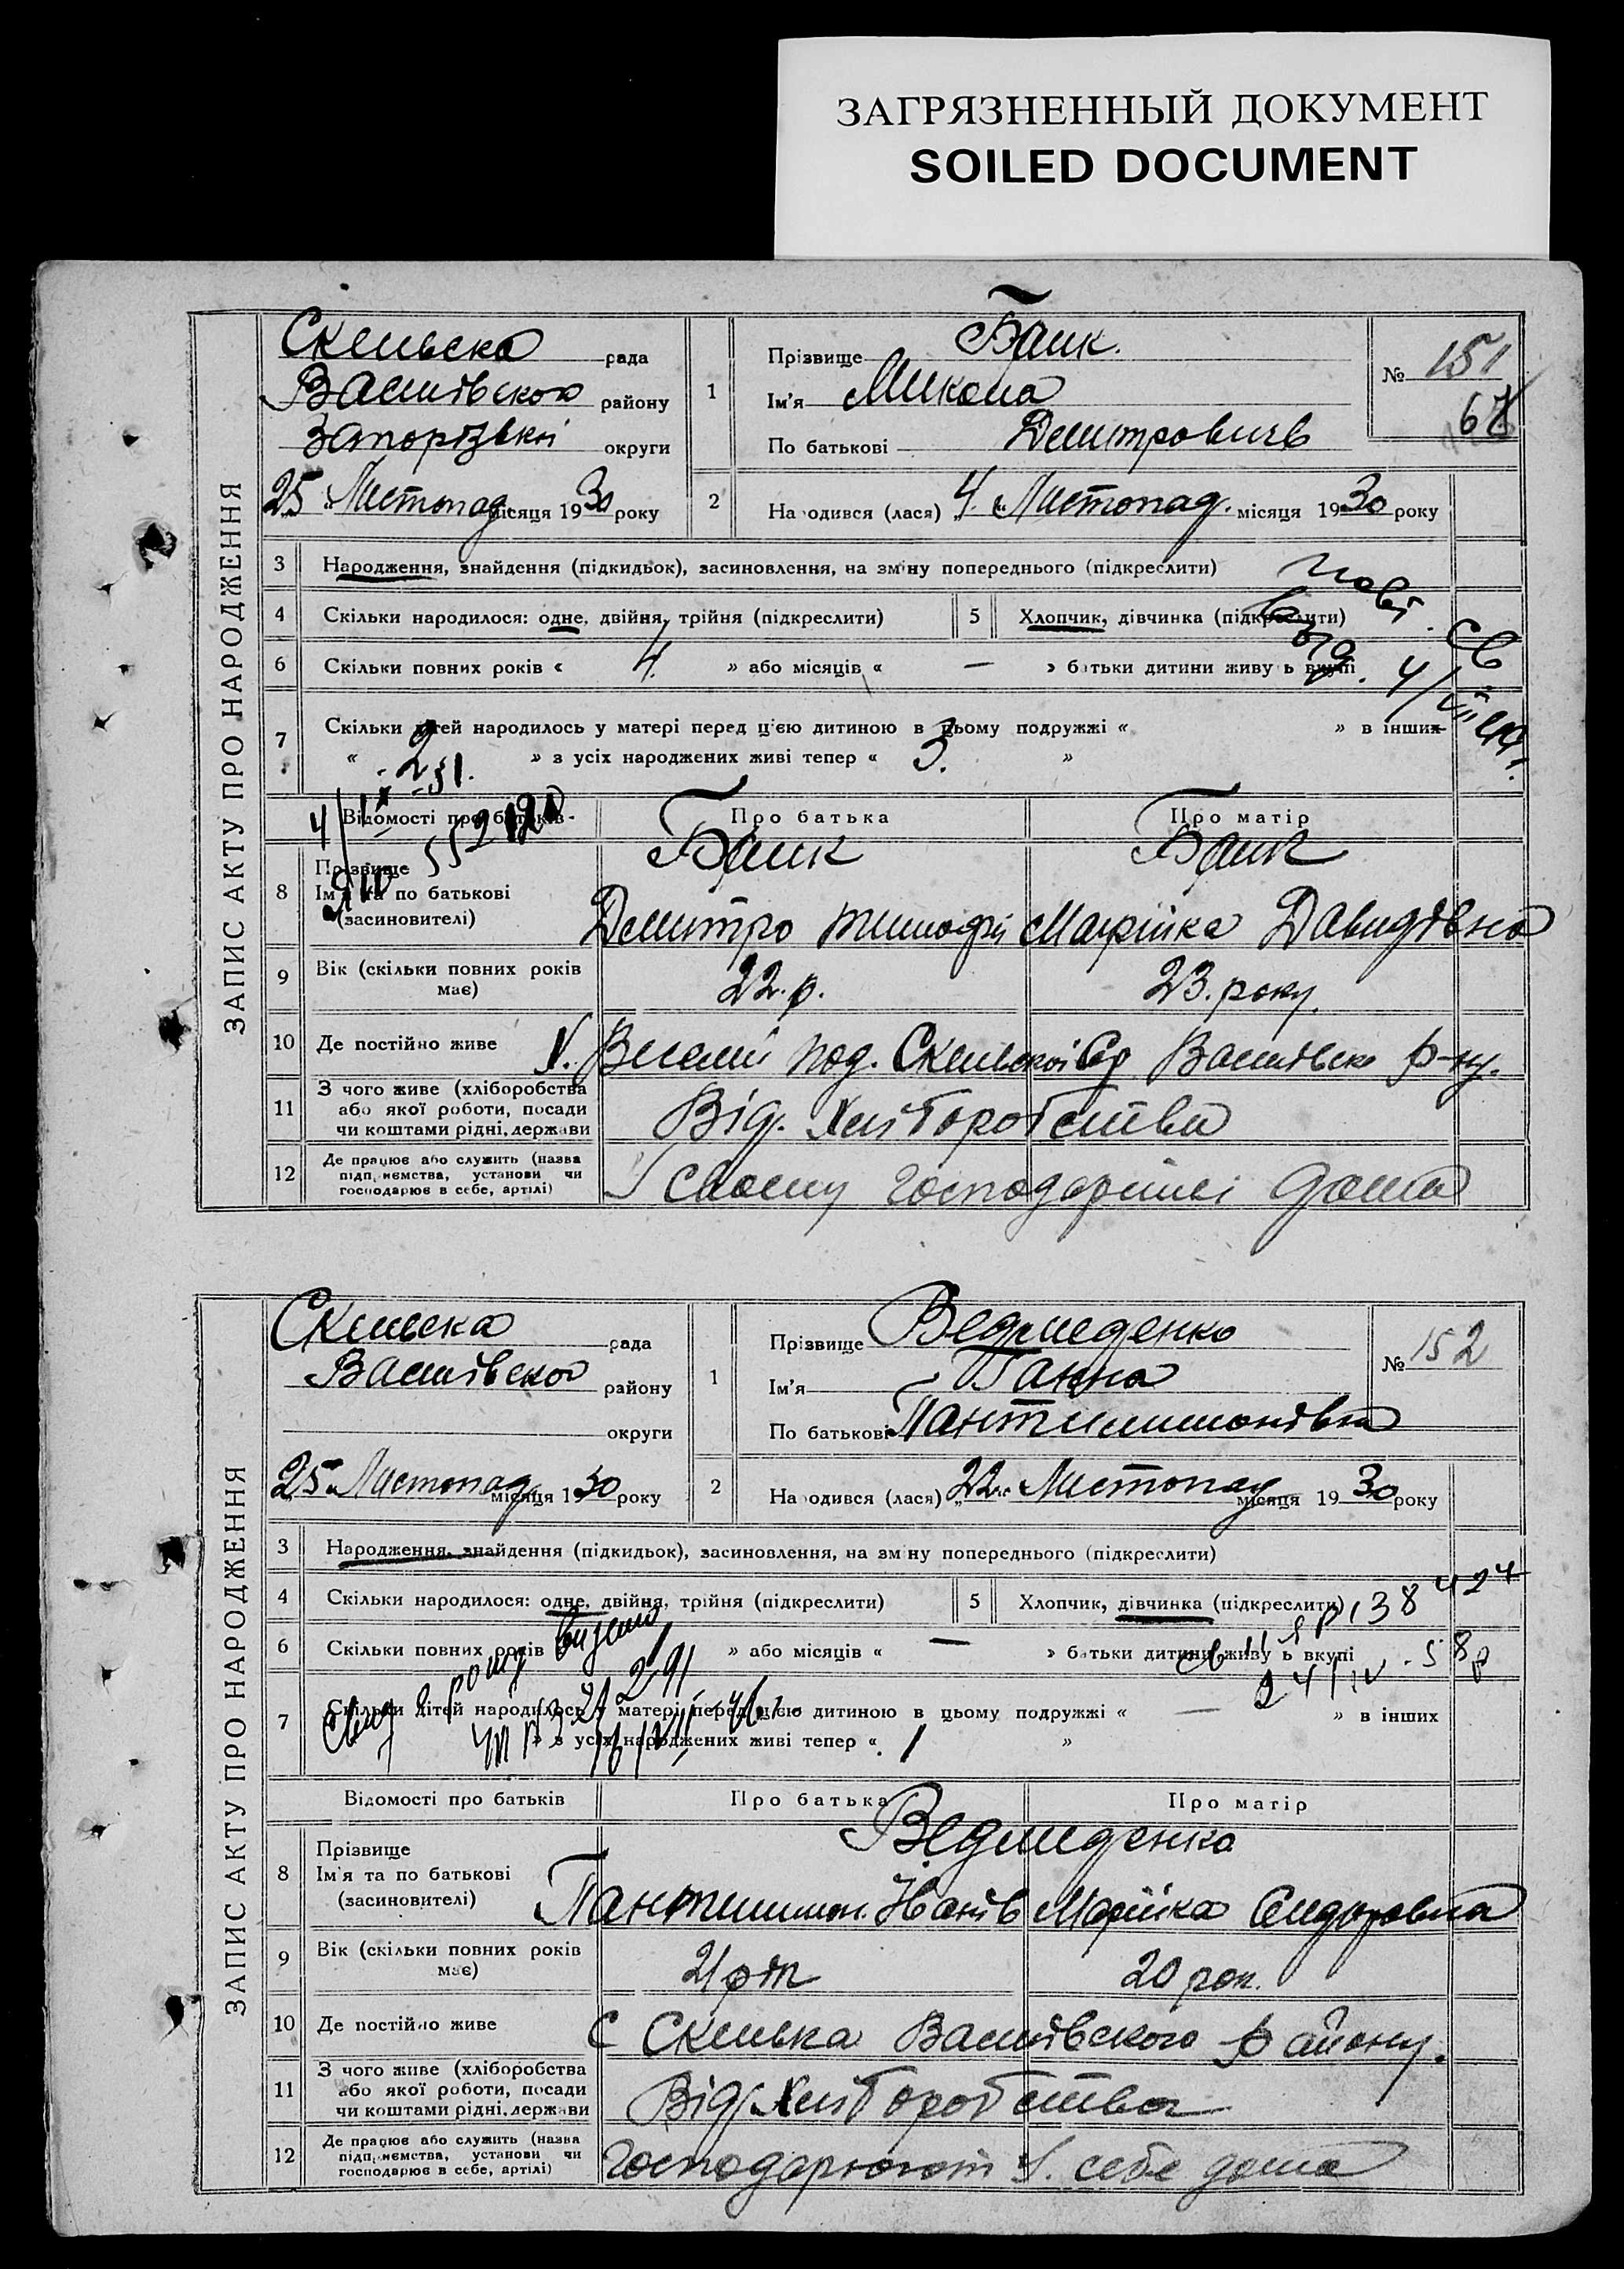 ЗАГРЯЗНЕННЫЙ ДОКУМЕНТ
SOILED DOCUMENT
ЗАПИС АКТУ ПРО НАРОДЖЕННЯ
Скельська рада
Василівского району
Запорізької округи
25 Листопад місяця 1930 року
1
Прізвище Баик.
Ім'я Микола
По батькові Дмитровичь
№ 151
67
2 Народився (лася) „4" Листопад. місяця 1930 року
3 Народження, знайдення (підкидьок), засиновлення, на зміну попереднього (підкреслити)
4 Скільки народилося: одне, двійня, трійня (підкреслити) 5 Хлопчик, дівчинка (підкреслити)
6 Скільки повних років « 4. » або місяців « — » батьки дитини живуть вкупі
7 Скільки дітей народилось у матері перед цією дитиною в цьому подружжі « » в інших
« 2 » з усіх народжених живі тепер « 3. »
Відомості про батьків Про батька Про матір
8 Прізвище
Ім'я та по батькові
(засновителі)
Баик Баик
Дмитро Тимофій Марійка Давидівна
9 Вік (скільки повних років має) 22.р. 23. року.
10 Де постійно живе Х. Веселий под. Скельской Ср Василівско р-ну.
11 З чого живе (хліборобства або якої роботи, посади чи коштами рідні, держави Від. Хліборобства
12 Де працює або служить (назва підприємства, установи чи господарює в себе, артілі) У своему господарстві дома
ЗАПИС АКТУ ПРО НАРОДЖЕННЯ
Скельска рада
Василівского району
округи
25 Листопад місяця 1930 року
1
Прізвище Ведмеденко
Ім'я Ганна
По батькові Пантилимонівна
№ 152
2 Народився (лася) „22" Листопад місяця 1930 року
3 Народження, знайдення (підкидьок), засиновлення, на зміну попереднього (підкреслити)
4 Скільки народилося: одне, двійня, трійня (підкреслити) 5 Хлопчик, дівчинка (підкреслити)
6 Скільки повних років » або місяців « — » батьки дитини живуть вкупі
7 Скільки дітей народилось у матері перед цією дитиною в цьому подружжі « — » в інших
» з усіх народжених живі тепер « 1 »
Відомості про батьків Про батька Про матір
8 Прізвище
Ім'я та по батькові
(засиновителі)
Ведмеденко
Пантилимон. Иванів Марійка Сидоровна
9 Вік (скільки повних років має) 21 рік 20 рок.
10 Де постійно живе с Скелька Василівского району.
11 З чого живе (хліборобства або якої роботи, посади чи коштами рідні, держави Від Хліборобства
12 Де працює або служить (назва підприємства, установи чи господарює в себе, артілі) Господарюют У. себе дома